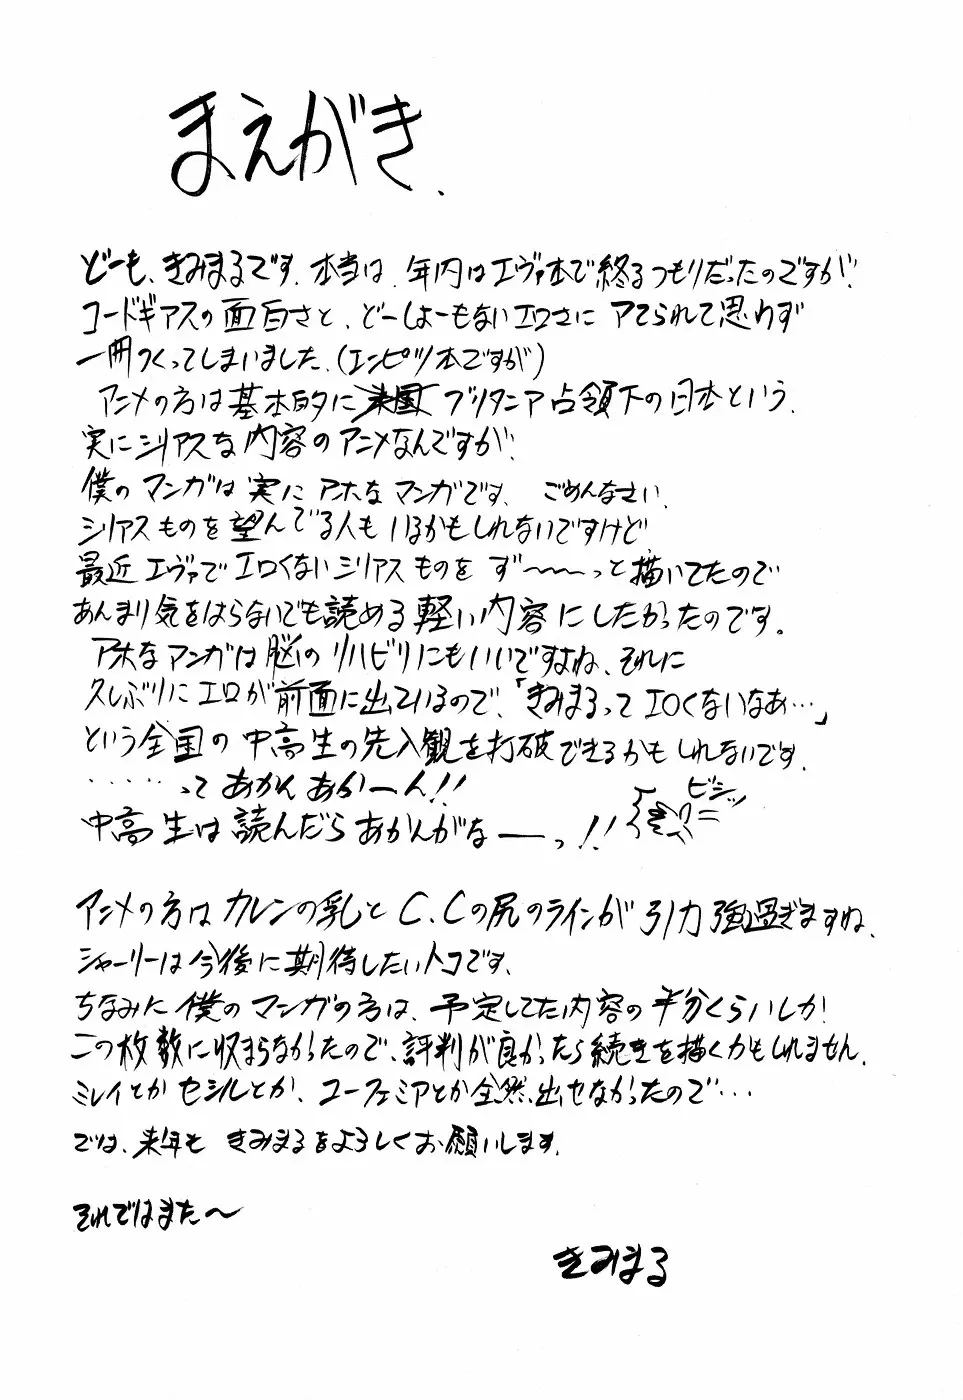 まえがき、
どーも、きみまるです。本当は、年内はエヴァ本で終るつもりだったのですが、
コードギアスの面白さと、どーしょーもないエロさにアてられて思わず
一冊つくってしまいました。(エンピツ本ですが)
アニメの方は基本的に ブリタニア占領下の日本という、
実にシリアスな内容のアニメなんですが、
僕のマンガは実にアホなマンガです。ごめんなさい。
シリアスものを望んでる人もいるかもしれないですけど
最近エヴァでエロくないシリアスものをず〜〜〜っと描いてたので
あんまり気をはらないでも読める軽い内容にしたかったのです。
アホなマンガは脳のリハビリにもいいですよね、それに
久しぶりにエロが前面に出ているので、「きみまるってエロくないなぁ…」
という全国の中高生の先入観を打破できるかもしれないです。
……ってあかんあかーん!!
中高生は読んだらあかんがなーっ!! ビシッ
アニメの方はカレンの乳とC.Cの尻のラインが引力強過ぎますね。
シャーリーは今後に期待したいトコです。
ちなみに僕のマンガの方は、予定してた内容の半分くらいしか
この枚数に収まらなかったので、評判が良かったら続きを描くかもしれません。
ミレイとかセシルとか、ユーフェミアとか全然出せなかったので…
では、来年もきみまるをよろしくお願いします。
それではまた〜
きみまる